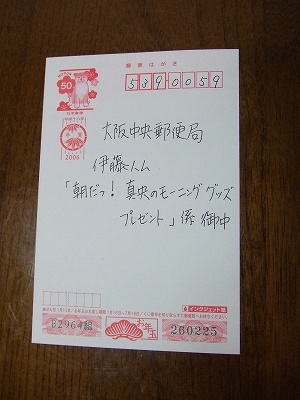 郵便はがき
50
日本郵便
5390059
2006
大阪中央郵便局
伊藤ハム
「朝だっ！真央のモーニンググッズ
プレゼント」係 御中
インクジェット紙
B2964組
お年玉
260225